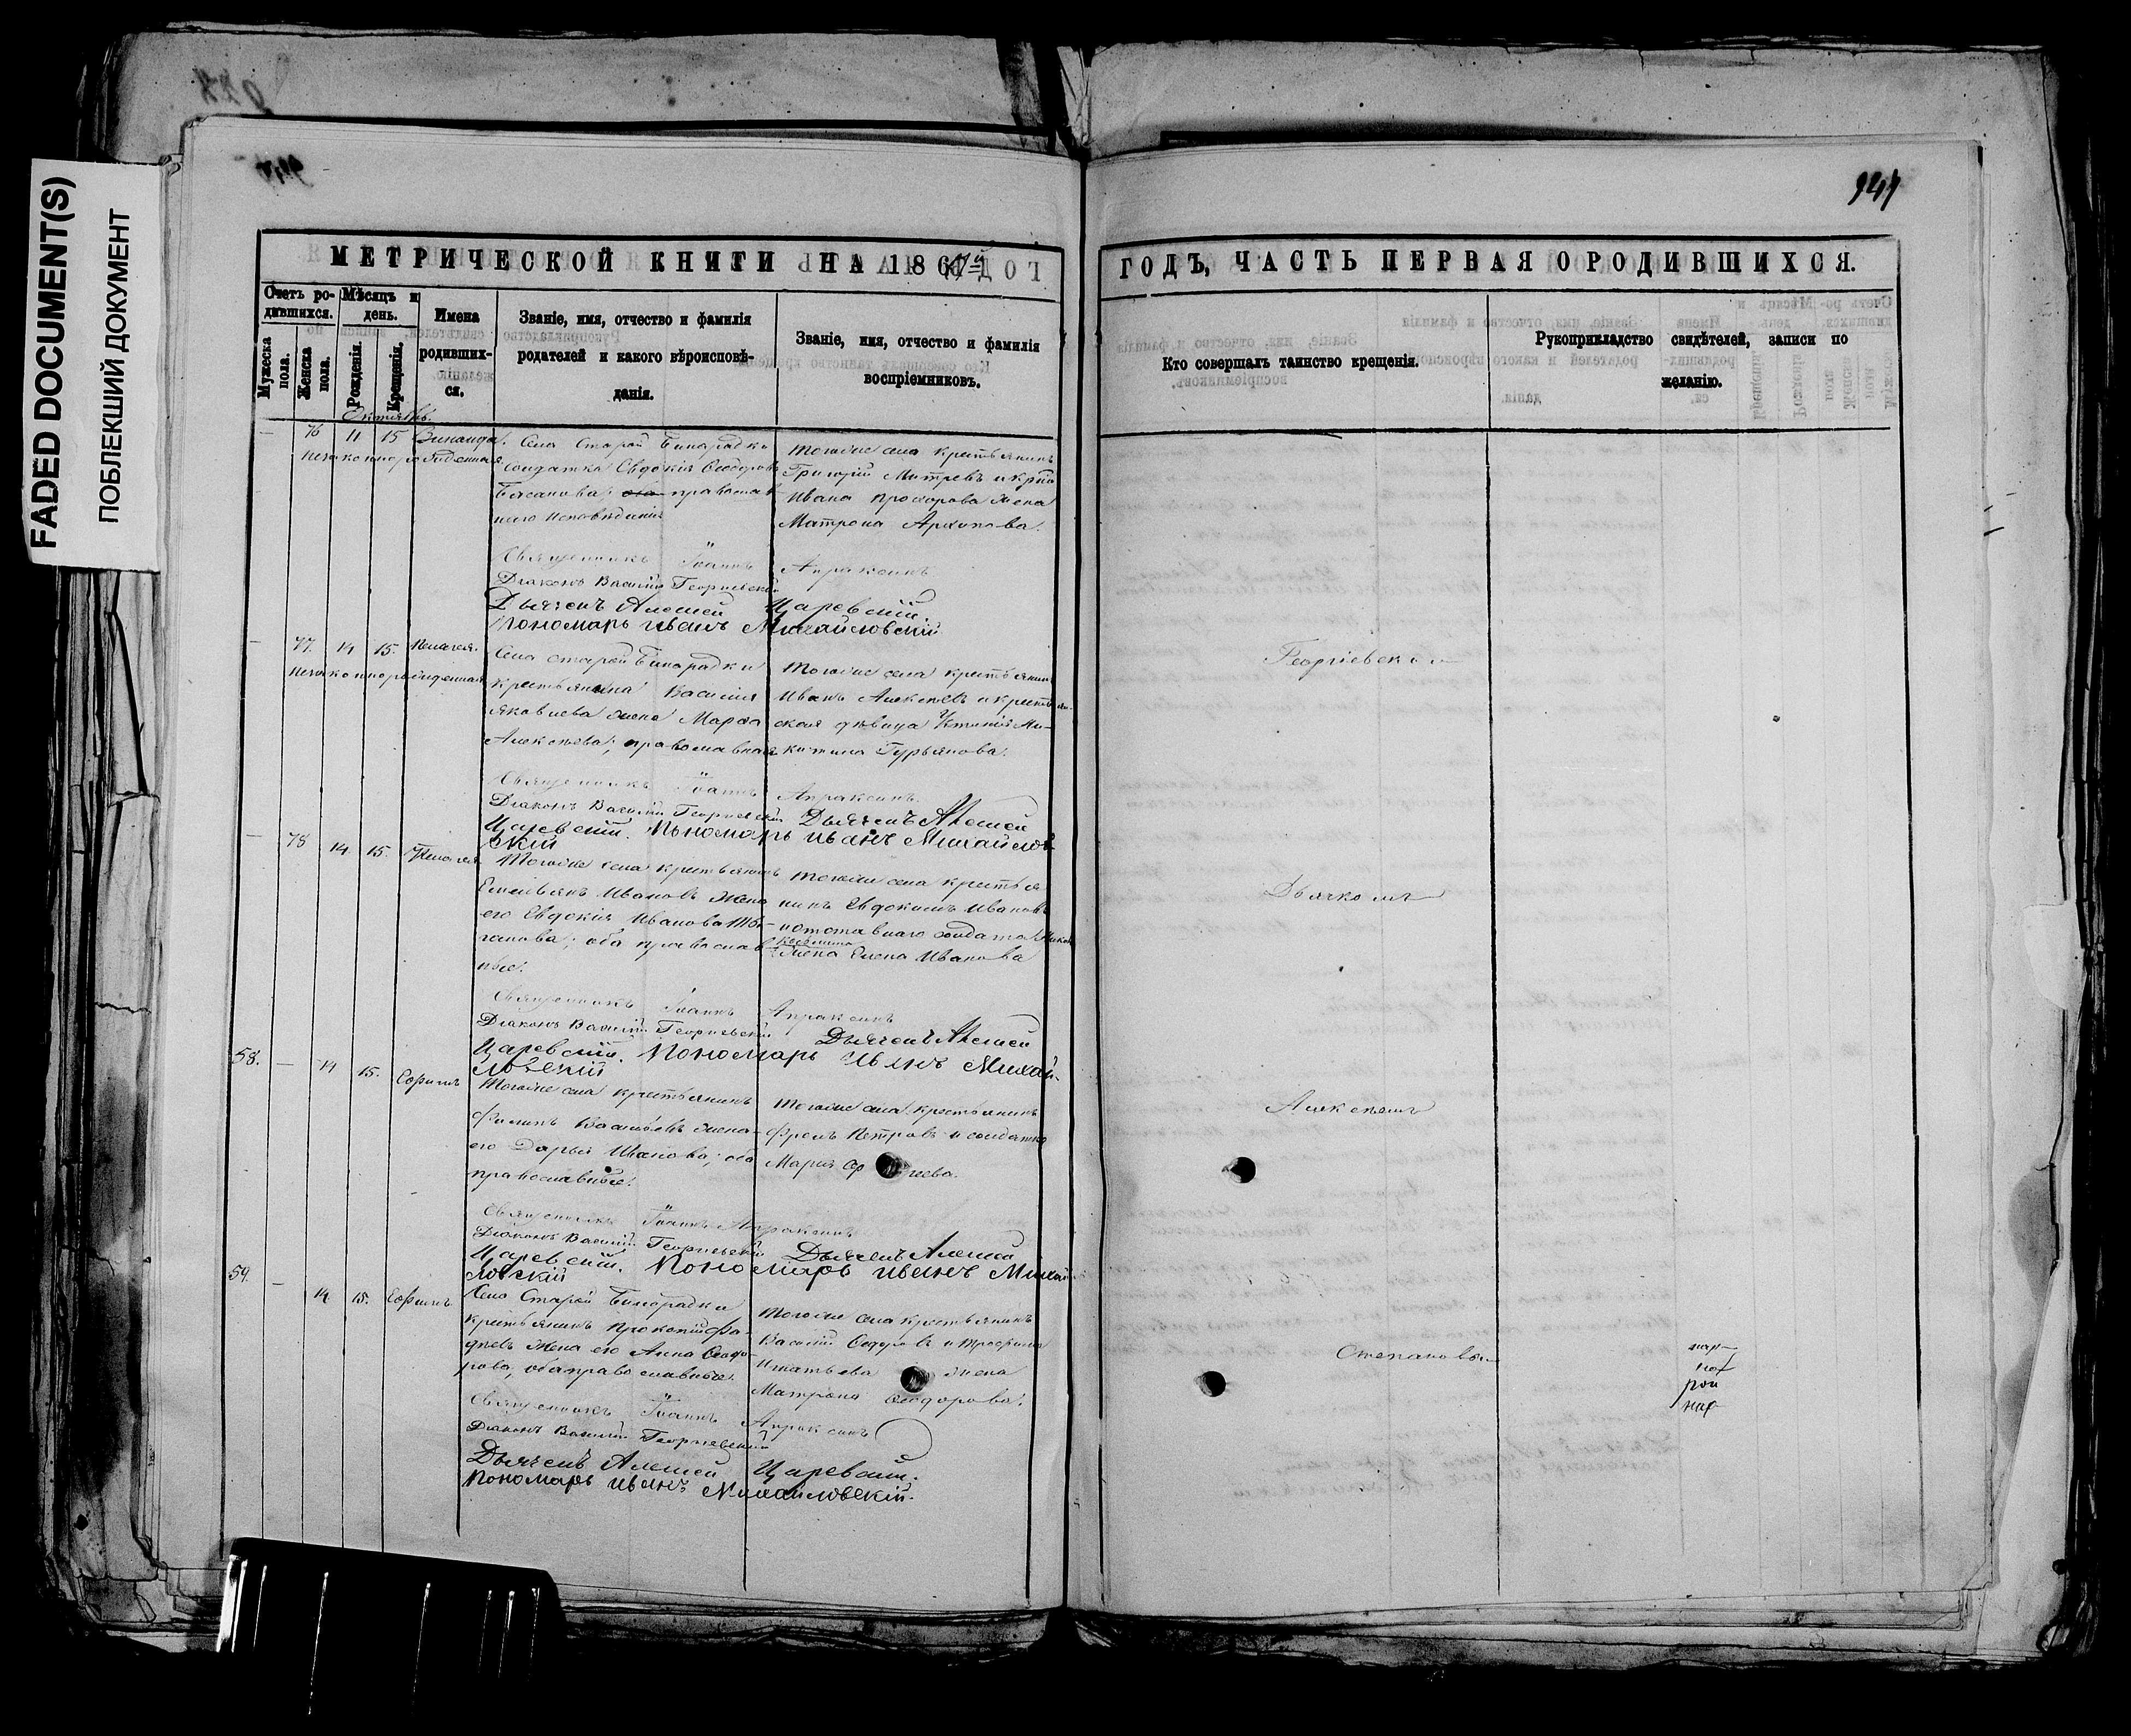 FADED DOCUMENT(S)
ПОБЛЕКШИЙ ДОКУМЕНТ
МЕТРИЧЕСКОЙ КНИГИ НА 186
ГОДЪ, ЧАСТЬ ПЕРВАЯ О РОДИВШИХСЯ.
Счетъ ро-
дившихся.
Мужеска
пола.
Женска
пола.
Мѣсяцъ и
день.
Рожденія.
Крещенія.
Имена
родивших-
ся.
Званіе, имя, отчество и фамилія
родителей и какого вѣроисповѣ-
данія.
Званіе, имя, отчество и фамилія
воспріемниковъ.
Кто совершалъ таинство крещенія.
Рукоприкладство свидѣтелей, записи по
желанію.
Октябрь.
76 11 15
незаконнорожденная
Села Старой Бинарадки
солдатка Евдокія Ѳеодорова
православ
наго исповѣданія
Тогоже села крестьянинъ
Григорій
Ивана Прохорова жена
Матрона Архипова.
Священникъ Іоаннъ Апраксинъ
Діаконъ Василій Георгіевскій
Дьячекъ Алексей Царевскій.
Пономарь Иванъ Михайловскій
77. 14 15. Пелагея.
незаконнорожденная
Села старой Бинарадки
крестьянина Василія
Яковлева жена Марѳа
Алексѣева; православная
Тогоже села крестьянинъ
Иванъ Алексѣевъ и крестьян-
ская дѣвица Ксенія Ни-
китина Гурьянова.
Георгіевскій
Священникъ Іоаннъ Апраксинъ.
Діаконъ Василій Георгіевскій Дьячекъ Алексей
Царевскій. Пономарь Иванъ Михайлов
скій
78 14 15. Пелагея
Тогоже села крестьянинъ
Емельянъ Ивановъ жена
его Евдокія Иванова
оба православ
ные.
Тогоже села крестья
нинъ Евдокимъ Ивановъ
и отставнаго солдата
жена Елена Иванова
Дьячкомъ
Священникъ Іоаннъ Апраксинъ
Діаконъ Василій Георгіевскій Дьячекъ Алексей
Царевскій. Пономарь Иванъ Михай-
ловскій
58. 14 15. Ефимъ
Тогоже села крестьянинъ
Филипъ Васильевъ жена
его Дарья Иванова; оба
православные.
Тогоже села крестьянинъ
Фролъ Петровъ и солдатка
Марія
Алексѣемъ
Священникъ Іоаннъ Апраксинъ
Діаконъ Василій Георгіевскій Дьячекъ Алексей
Царевскій. Пономарь Иванъ Михай
ловскій
59. 14 15. Ефимъ
Села Старой Бинарадки
крестьянинъ Прокопій Фа-
дѣевъ жена его Анна Ѳеодо-
рова, оба православные.
Тогоже села крестьянинъ
Василій Ѳедоровъ и Трофима
Игнатьева жена
Матрона Ѳеодорова.
Степановъ
Священникъ Іоаннъ Апраксинъ
Діаконъ Василій Георгіевскій
Дьячекъ Алексей Царевскій.
Пономарь Иванъ Михайловскій.